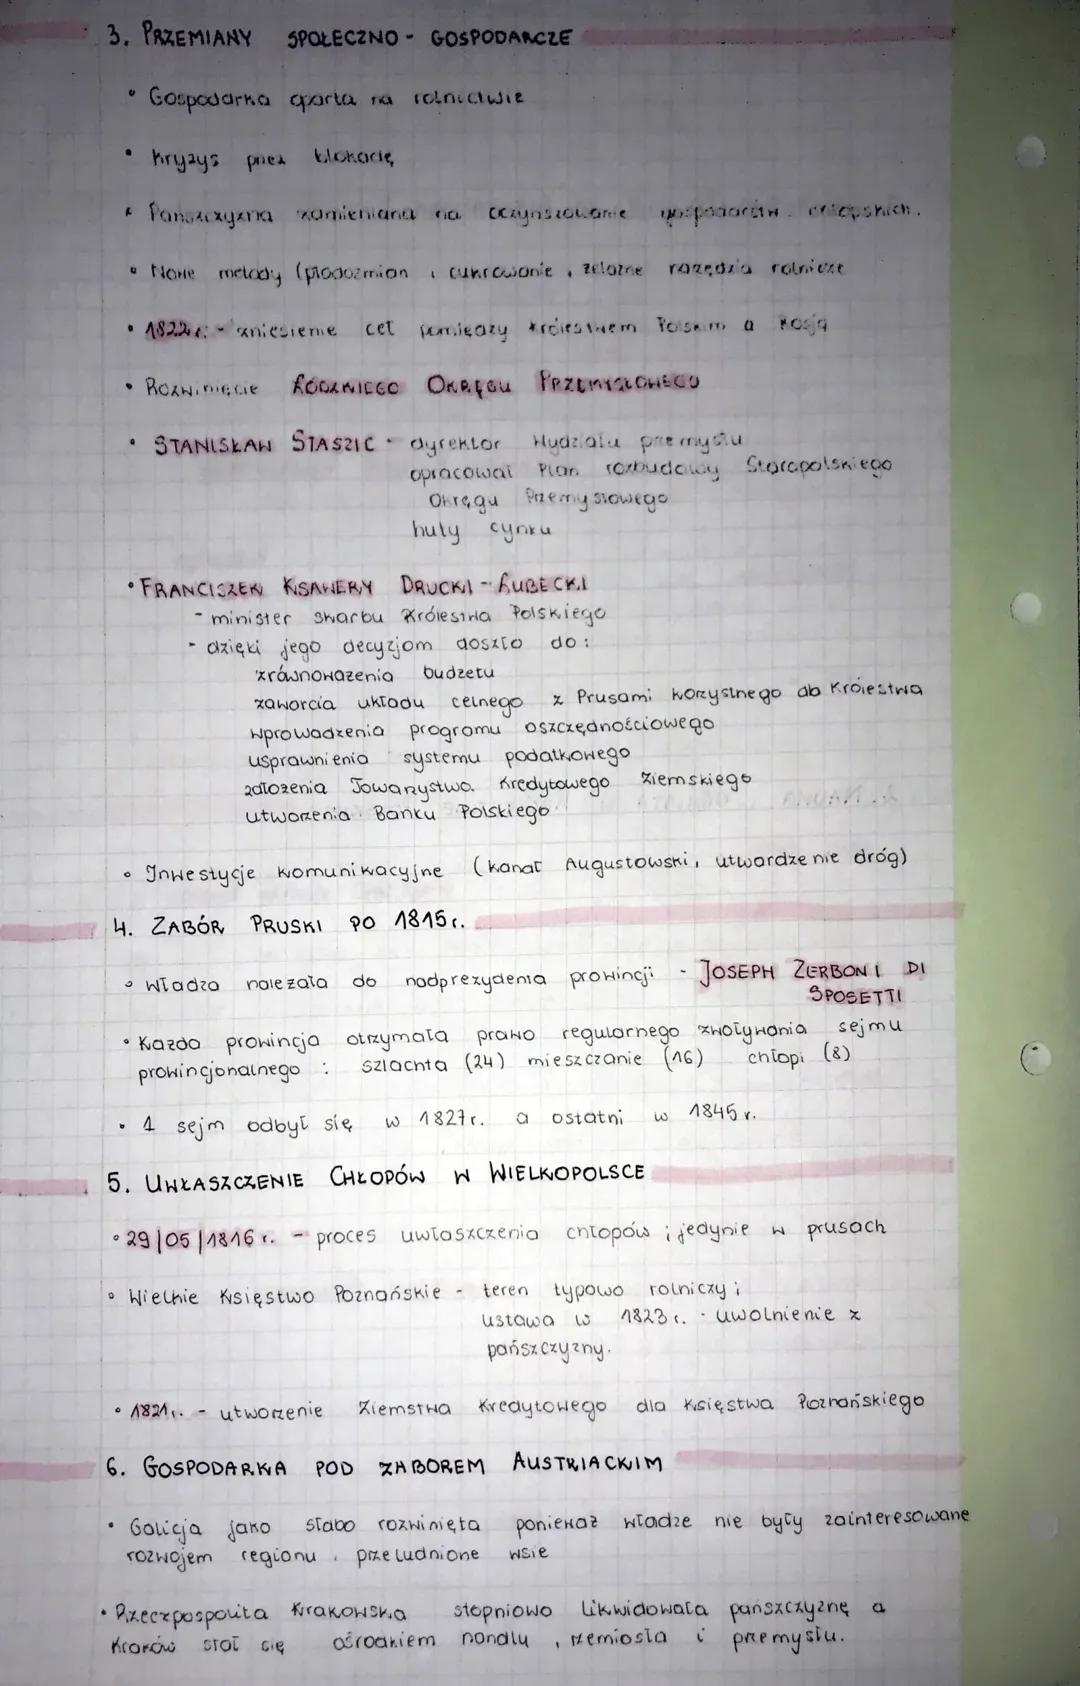 3. PRZEMIANY SPOŁECZNO - GOSPODARCZE
• Gospodarka oparta na rolnictwie
• Kryzys przez blokadę
• Pańszczyzna zamieniana na oczynszowanie gospodarstw chłopskich.
• Nowe metody (płodozmian i cukrowanie, żelazne narzędzia rolnicze
• 1822 r. - zniesienie ceł pomiędzy Królestwem Polskim a Rosją
• Rozwinięcie ŁÓDZKIEGO OKRĘGU PRZEMYSŁOWEGO
• STANISŁAW STASZIC - dyrektor Wydziału przemysłu
opracował Plan rozbudowy Staropolskiego
Okręgu Przemysłowego
huty cynku
• FRANCISZEK KSAWERY DRUCKI - LUBECKI
- minister skarbu Królestwa Polskiego
- dzięki jego decyzjom doszło do:
zrównoważenia budżetu
zaworcia układu celnego z Prusami korzystnego ab Królestwa
wprowadzenia programu oszczędnościowego
usprawnienia systemu podatkowego
założenia Towarzystwa Kredytowego Ziemskiego
utworzenia Banku Polskiego
• Inwestycje komunikacyjne (kanał Augustowski, utwardzenie dróg)
4. ZABÓR PRUSKI PO 1815 r.
• Władza należała do nadprezydenta prowincji - JOSEPH ZERBONI DI
SPOSETTI
• Każda prowincja otrzymała prawo regularnego zwoływania sejmu
prowincjonalnego : szlachta (24) mieszczanie (16) chłopi (8)
• 1 sejm odbył się w 1827 r. a ostatni w 1845 r.
5. UWŁASZCZENIE CHŁOPÓW W WIELKOPOLSCE
• 29|05|1816 r. - proces uwłaszczenia chłopów ; jedynie w prusach
• Wielkie Księstwo Poznańskie - teren typowo rolniczy ;
ustawa w 1823 r. - uwolnienie z
pańszczyzny.
• 1821 r. - utworzenie Ziemstwa Kredytowego dla Księstwa Poznańskiego
6. GOSPODARKA POD ZABOREM AUSTRIACKIM
• Galicja jako słabo rozwinięta ponieważ władze nie były zainteresowane
rozwojem regionu, przeludnione wsie
• Rzeczpospolita Krakowska stopniowo likwidowała pańszczyznę a
Kraków stał się ośrodkiem handlu, rzemiosła i przemysłu.